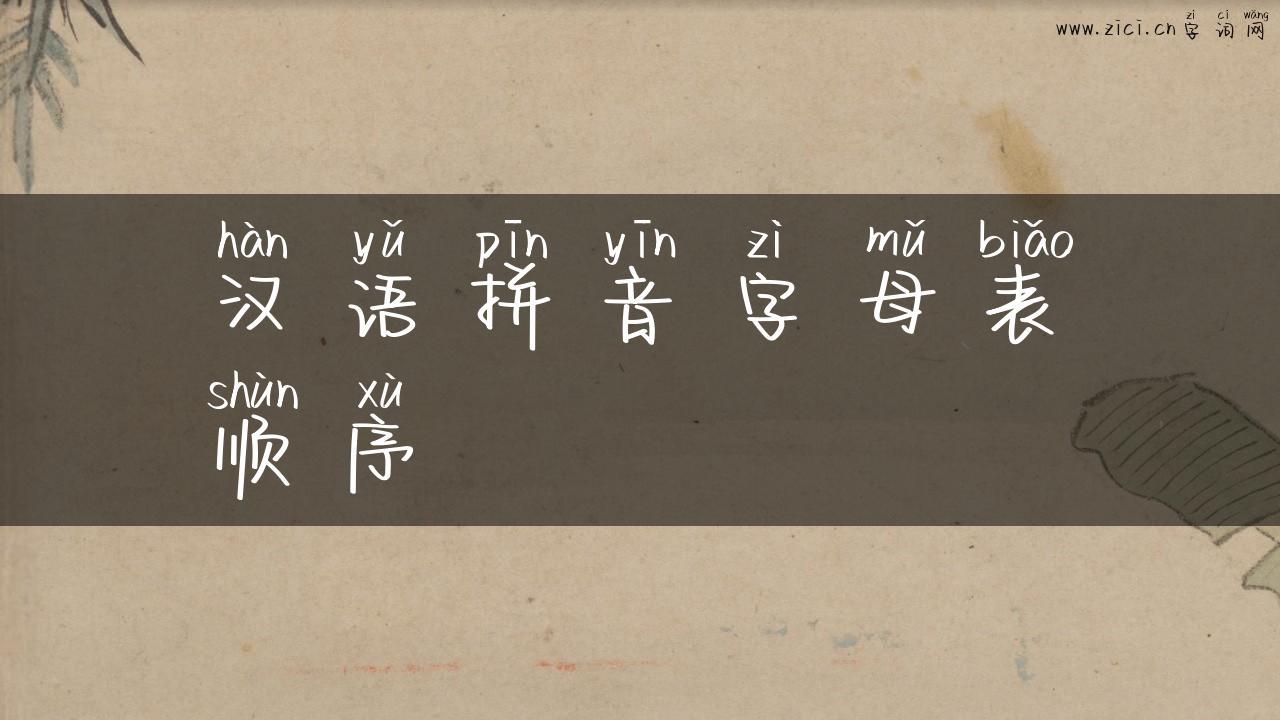 zì cí wǎng
www.zici.cn 字 词 网
hàn yǔ pīn yīn zì mǔ biǎo
汉 语 拼 音 字 母 表
shùn xù
顺 序